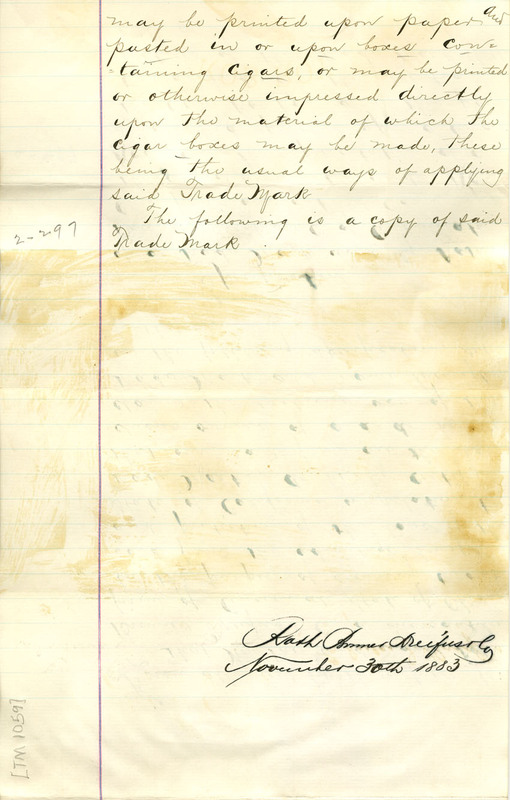 may be printed upon paper and
pasted in or upon boxes con=
=taining cigars, or may be printed
or otherwise impressed directly
upon the material of which the
cigar boxes may be made, these
being the usual ways of applying
said Trade Mark
The following is a copy of said
Trade Mark
2-2.97
November 30th 1883
[TM 1059]